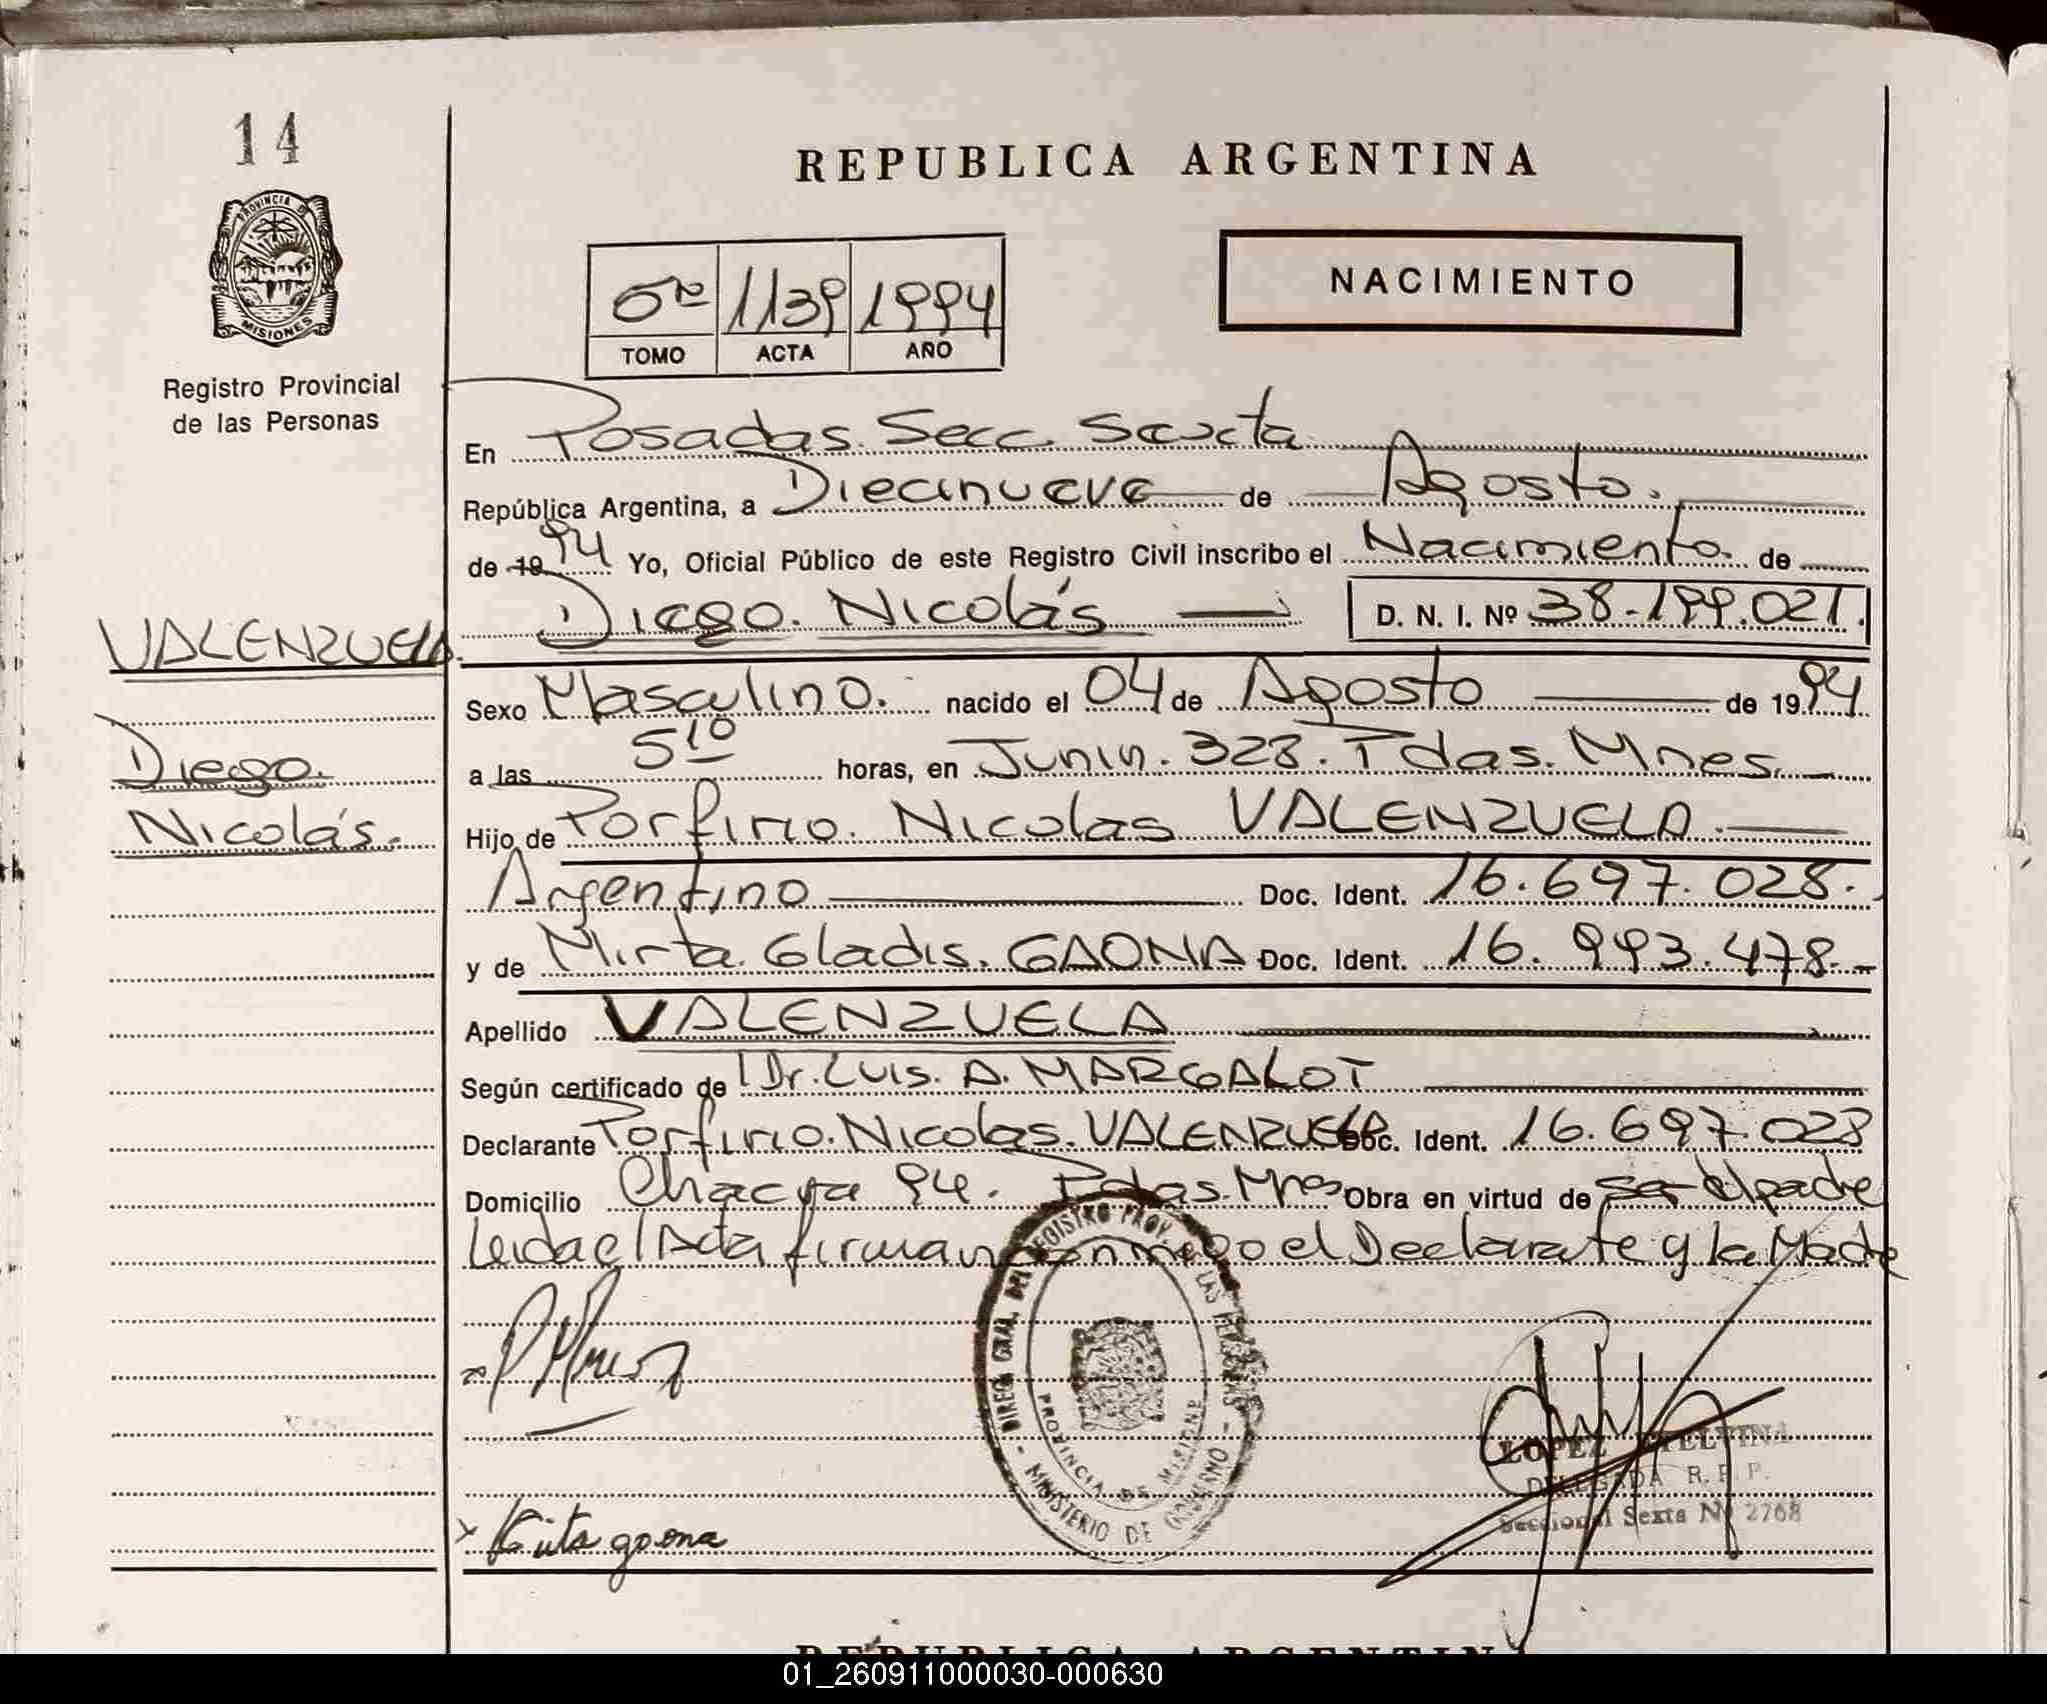 14
PROVINCIA DE
MISIONES
Registro Provincial
de las Personas
REPUBLICA ARGENTINA
NACIMIENTO
1139 1994
TOMO ACTA AÑO
En Posadas. Secc. Sexta
República Argentina, a Diecinueve de Agosto.
de 1994 Yo, Oficial Público de este Registro Civil inscribo el Nacimiento. de
Diego. Nicolás D. N. I. Nº 38-199.021.
VALENZUELA.
Diego.
Nicolás.
Sexo Masculino. nacido el 04 de Agosto de 1994
a las 5 10 horas, en Junin. 323. Pdas. Mnes.
Hijo de Porfirio. Nicolas VALENZUELA.
Argentino Doc. Ident. 16.697.028.
y de Mirta. Gladis. GAONA Doc. Ident. 16.993.478.-
Apellido VALENZUELA
Según certificado de Dr. Luis. A. MARGALOT
Declarante Porfirio. Nicolas. VALENZUELA Doc. Ident. 16.697.028
Domicilio Chacra 94. Pdas. Mnes Obra en virtud de ser el padre
Leida el Acta firman conmigo el Declarante y la Madre
DIREC. GRAL. DEL REGISTRO PROV. DE LAS PERSONAS
PROVINCIA DE MISIONES
- MINISTERIO DE GOBIERNO -
LOPEZ ETELVINA
DELEGADA R. P. P.
Seccional Sexta Nº 2768
gaona
REPUBLICA ARGENTINA
01_260911000030-000630